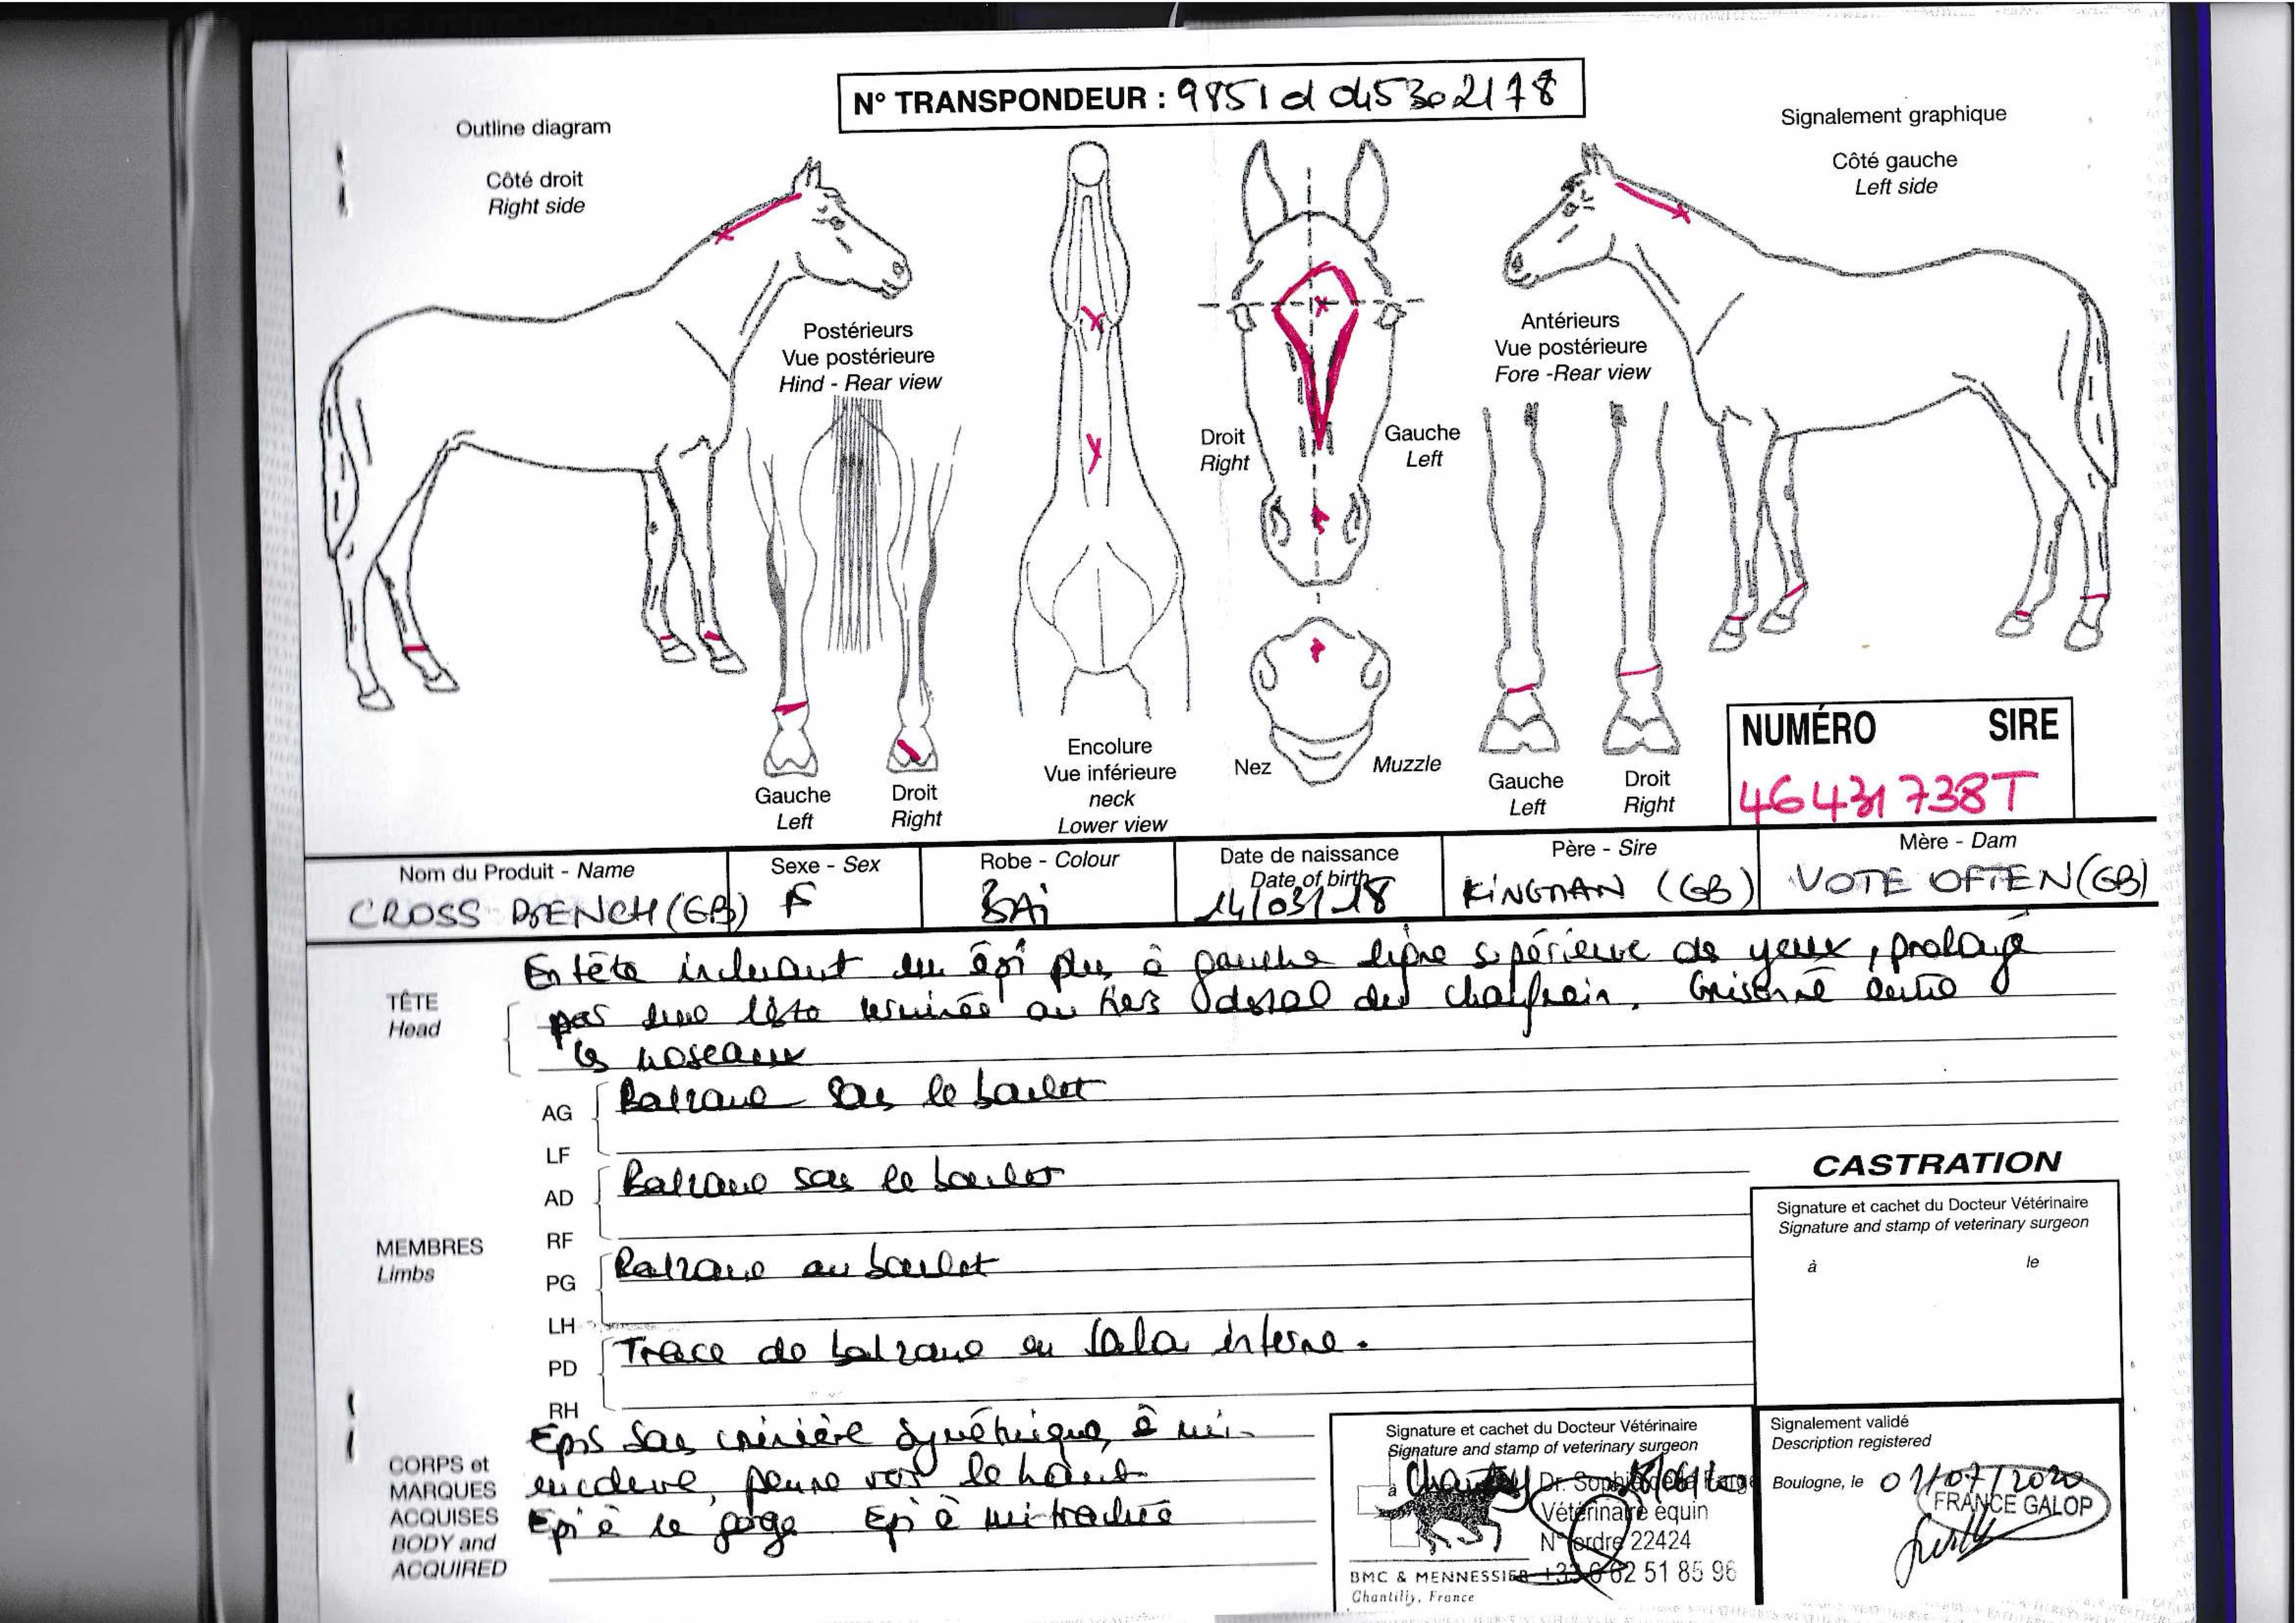 N° TRANSPONDEUR : 985101045302178
Outline diagram
Signalement graphique
Côté droit
Right side
Côté gauche
Left side
Postérieurs
Vue postérieure
Hind - Rear view
Antérieurs
Vue postérieure
Fore -Rear view
Droit
Right
Gauche
Left
Encolure
Vue inférieure
neck
Lower view
Nez
Muzzle
Gauche
Left
Droit
Right
Gauche
Left
Droit
Right
NUMÉRO SIRE
46431738T
Nom du Produit - Name
CROSS BENCH (GB)
Sexe - Sex
F
Robe - Colour
BAi
Date de naissance
Date of birth
14/03/18
Père - Sire
KiNGMAN (GB)
Mère - Dam
VOTE OFTEN (GB)
TÊTE
Head
En tête incluant un épi plus à gauche ligne supérieure des yeux, prolongé
par une liste terminée au tiers du chanfrein. Grisonné entre
les naseaux
AG
LF
Balzane sous le boulet
AD
RF
Balzane sous le boulet
MEMBRES
Limbs
PG
LH
Balzane au boulet
PD
RH
Trace de balzane en talon interne.
CORPS et
MARQUES
ACQUISES
BODY and
ACQUIRED
Epis sous crinière symétrique, à mi-
encolure, penne vers le haut
Epi à la gorge Epi à mi-trachée
CASTRATION
Signature et cachet du Docteur Vétérinaire
Signature and stamp of veterinary surgeon
à le
Signature et cachet du Docteur Vétérinaire
Signature and stamp of veterinary surgeon
à Chantilly
Dr. Sophie
Vétérinaire équin
N° ordre 22424
+33 6 62 51 85 96
BMC & MENNESSIER
Chantilly, France
Signalement validé
Description registered
Boulogne, le 01/07/2020
FRANCE GALOP